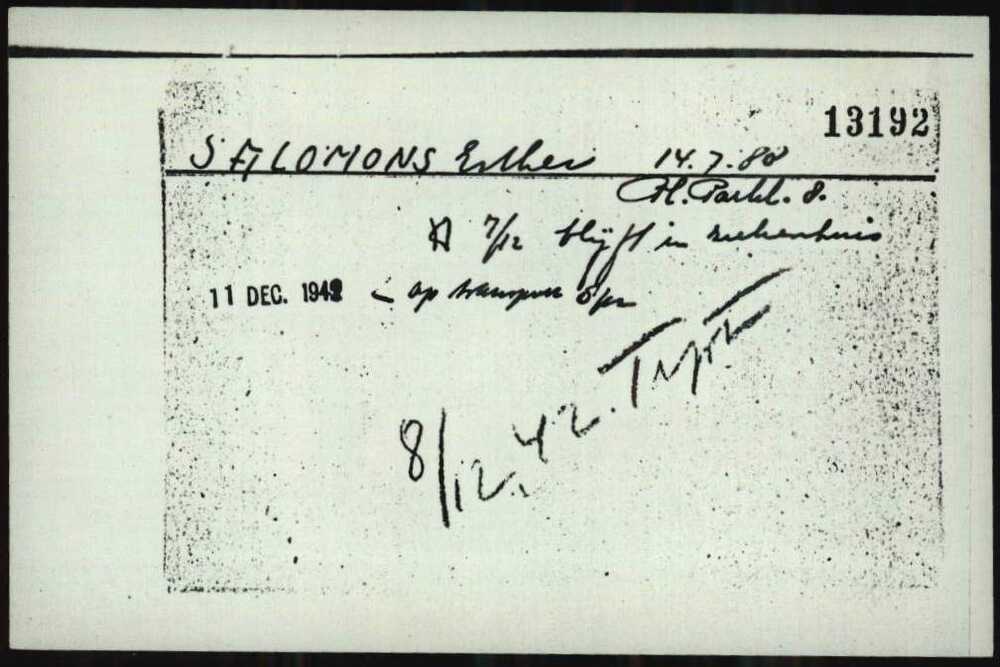 13192
SALOMONS Esther 14.7.88
Pl. Parkl. 8.
A 7/12 blijft in ziekenhuis
11 DEC. 1942 op transport 8/12
8/12.42. Trprt